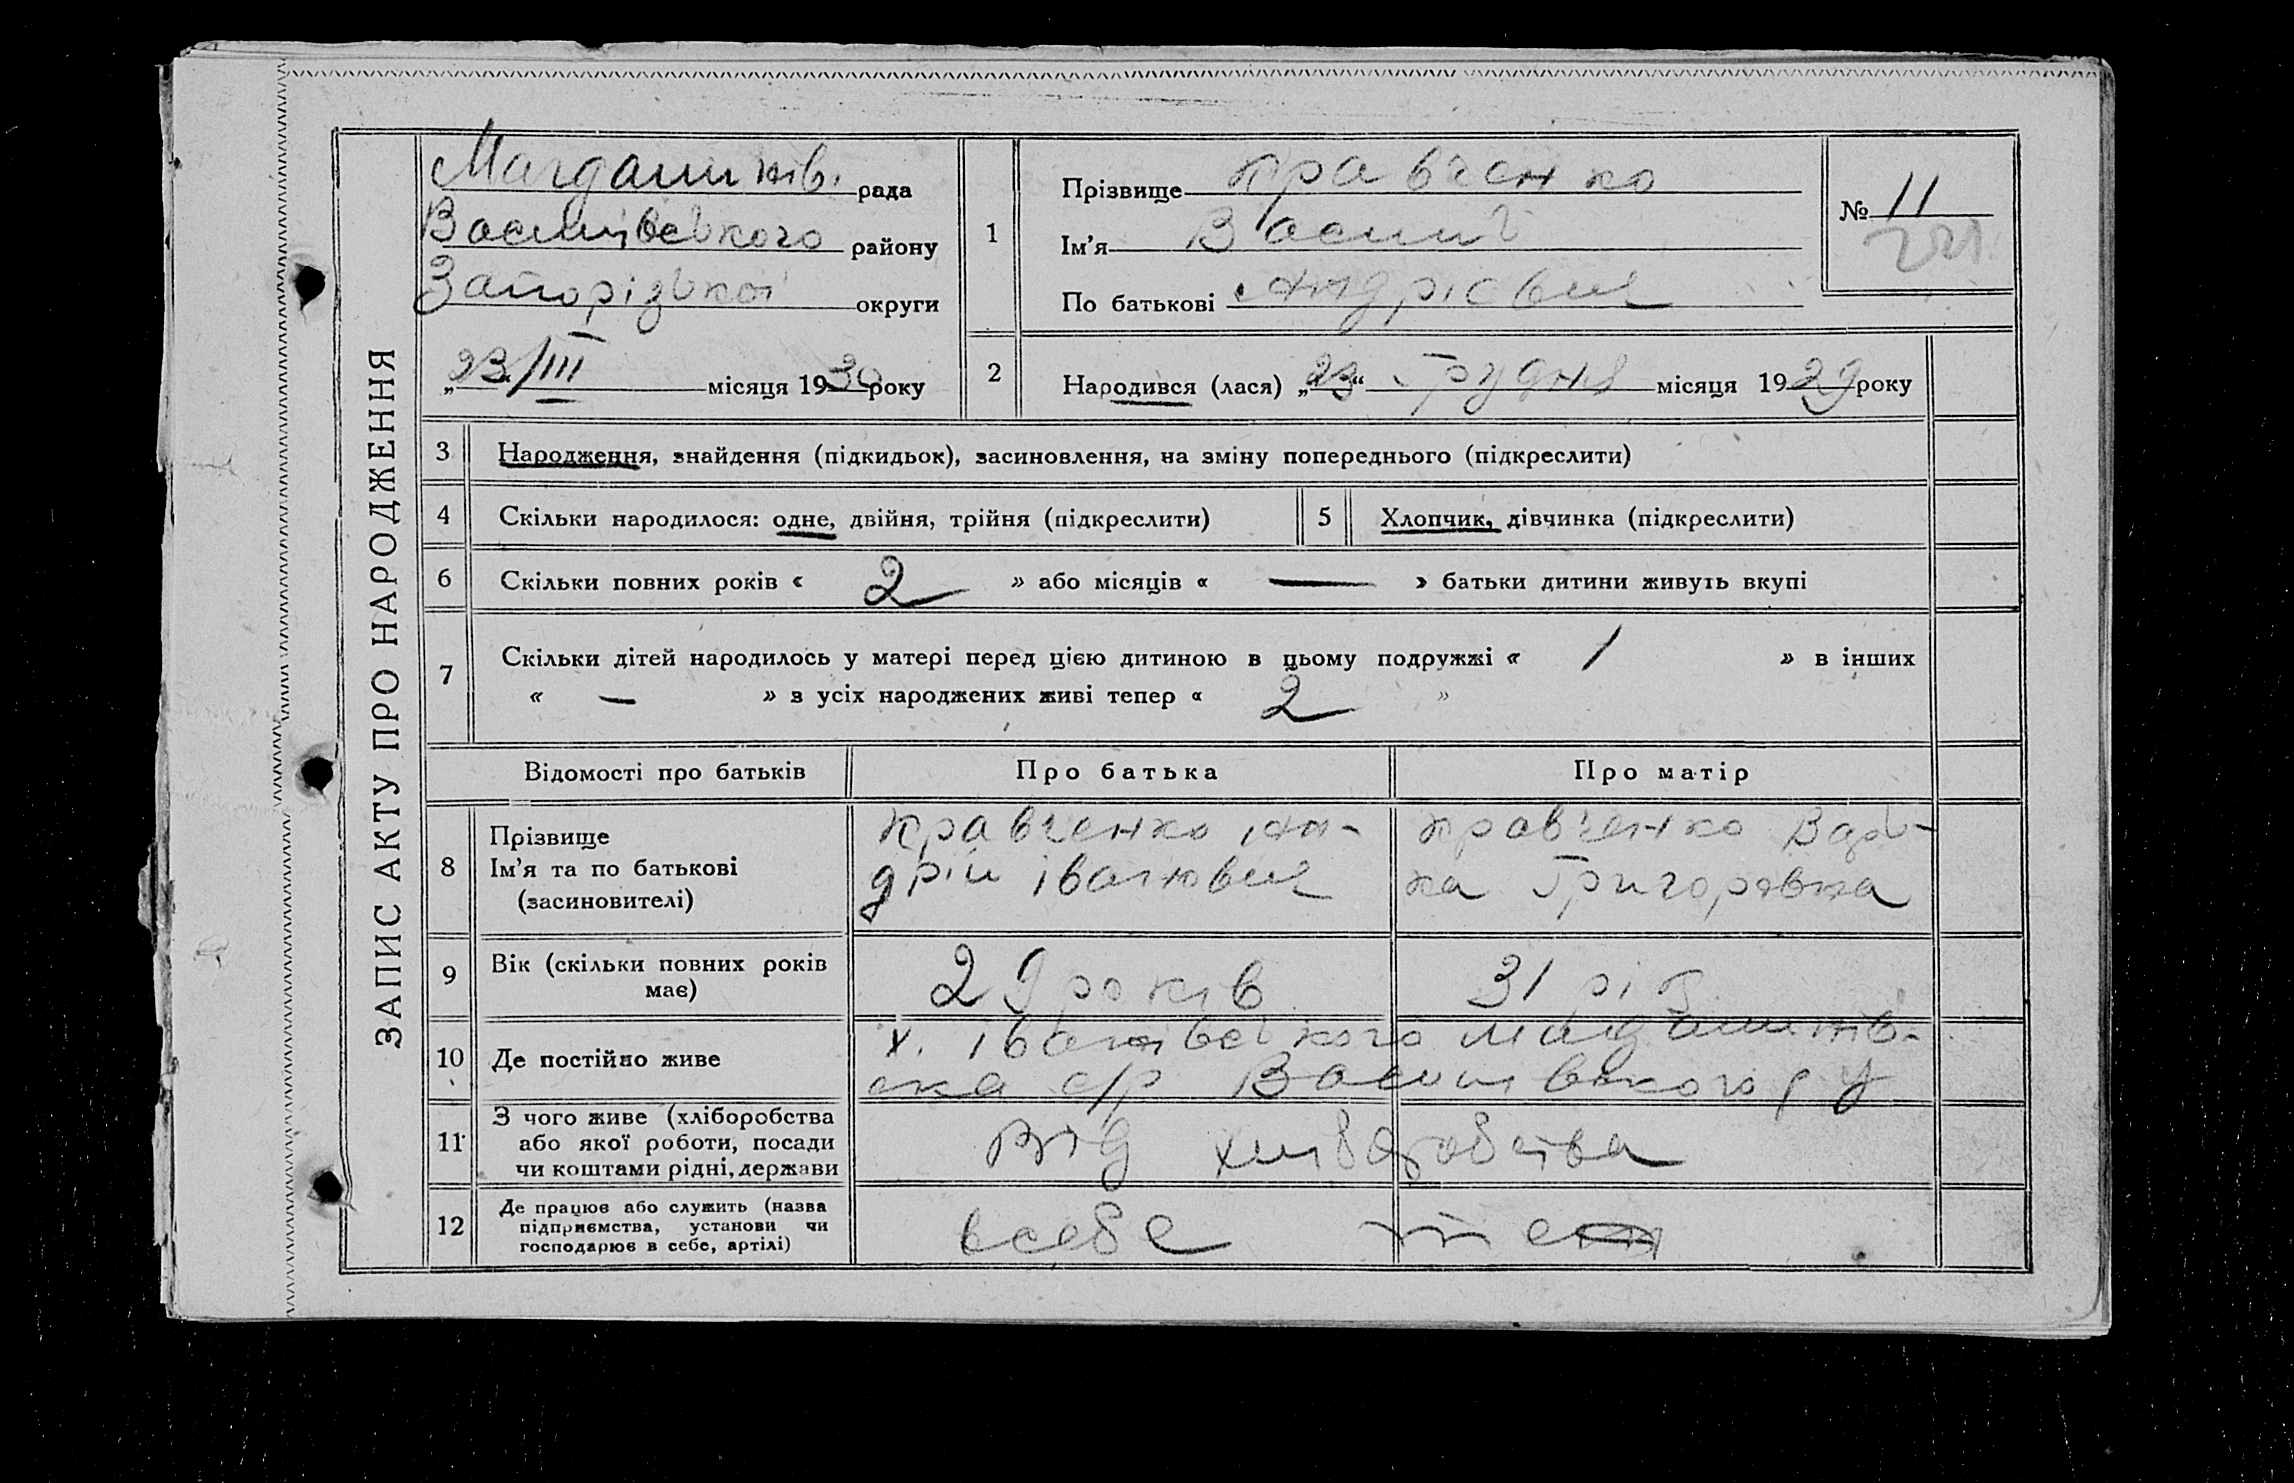 ЗАПИС АКТУ ПРО НАРОДЖЕННЯ
Магдалинів. рада
Василівського району
Запорізької округи
„23/III місяця 1930 року
1
Прізвище Кравченко
Ім’я Василь
По батькові Андрієвич
№ 11
2
Народився (лася) „23“ Грудня місяця 1929 року
3 Народження, знайдення (підкидьок), засиновлення, на зміну попереднього (підкреслити)
4 Скільки народилося: одне, двійня, трійня (підкреслити) 5 Хлопчик, дівчинка (підкреслити)
6 Скільки повних років « 2 » або місяців « — » батьки дитини живуть вкупі
7 Скільки дітей народилось у матері перед цією дитиною в цьому подружжі « 1 » в інших
« — » з усіх народжених живі тепер « 2 »
Відомості про батьків Про батька Про матір
8
Прізвище
Ім’я та по батькові
(засиновителі)
Кравченко Ан-
дрій Іванович
Кравченко Вар-
ка Григорівна
9
Вік (скільки повних років
має)
29 років
31 рік
10 Де постійно живе
х. Іванівського
ська с/р Василівського р у
11
З чого живе (хліборобства
або якої роботи, посади
чи коштами рідні, держави
Від хліборобства
12
Де працює або служить (назва
підприємства, установи чи
господарює в себе, артілі)
в себе